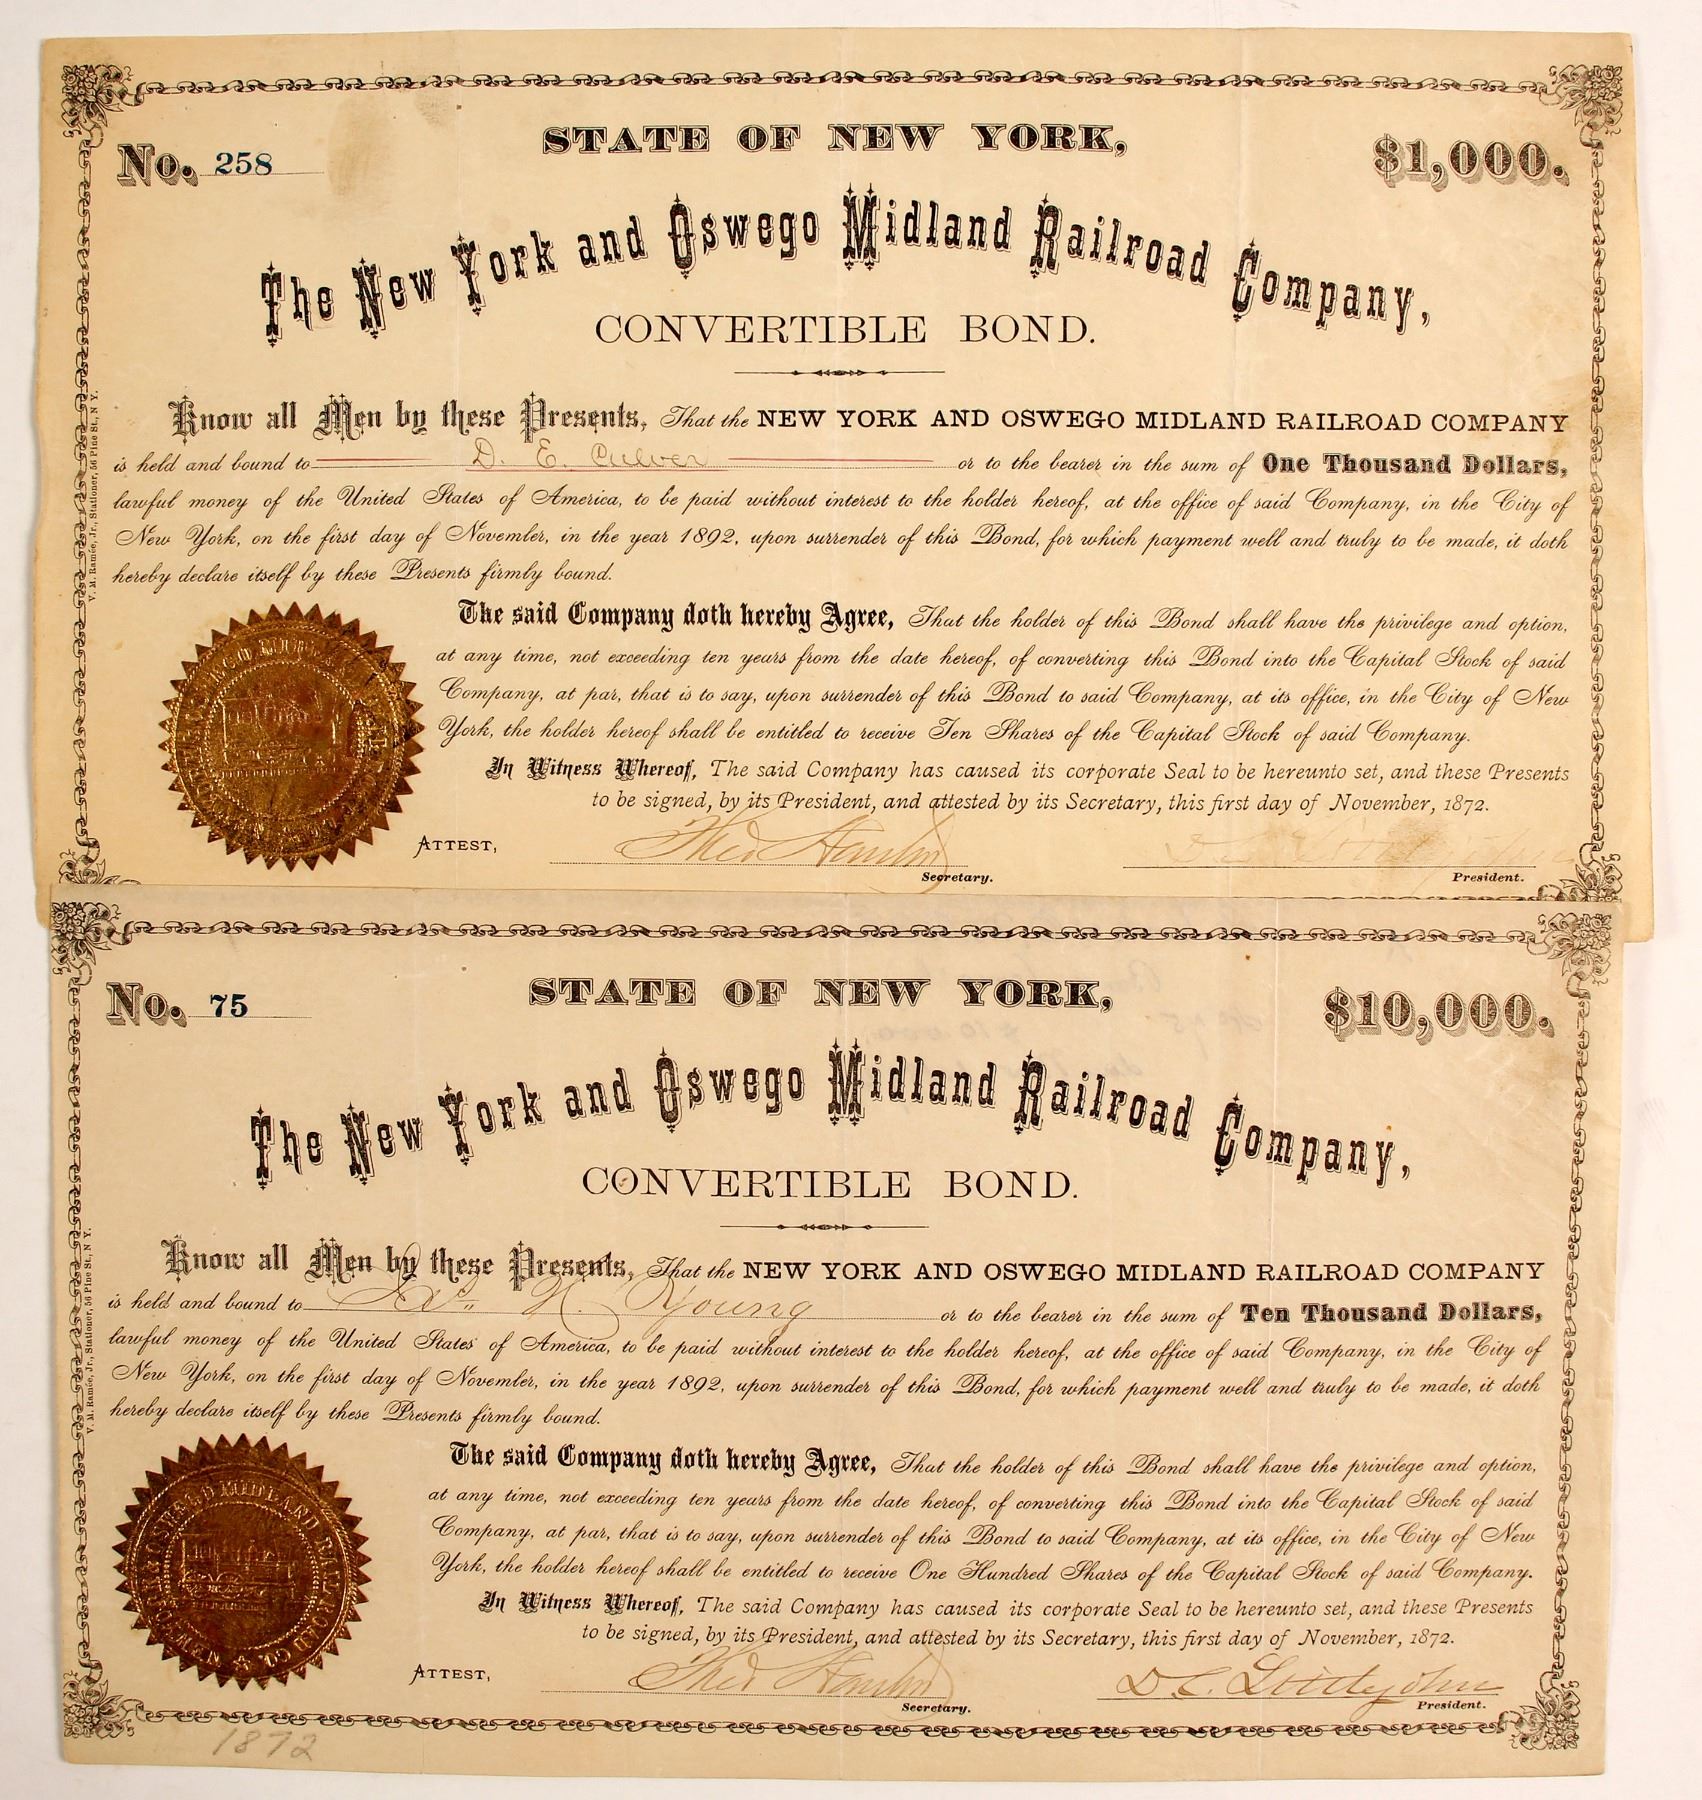 No. 258
STATE OF NEW YORK,
$1,000.
The New York and Oswego Midland Railroad Company,
CONVERTIBLE BOND.
Know all Men by these Presents, That the NEW YORK AND OSWEGO MIDLAND RAILROAD COMPANY
is held and bound to D. E. Culver or to the bearer in the sum of One Thousand Dollars,
lawful money of the United States of America, to be paid without interest to the holder hereof, at the office of said Company, in the City of
New York, on the first day of November, in the year 1892, upon surrender of this Bond, for which payment well and truly to be made, it doth
hereby declare itself by these Presents firmly bound.
The said Company doth hereby Agree, That the holder of this Bond shall have the privilege and option,
at any time, not exceeding ten years from the date hereof, of converting this Bond into the Capital Stock of said
Company, at par, that is to say, upon surrender of this Bond to said Company, at its office, in the City of New
York, the holder hereof shall be entitled to receive Ten Shares of the Capital Stock of said Company.
In Witness Whereof, The said Company has caused its corporate Seal to be hereunto set, and these Presents
to be signed, by its President, and attested by its Secretary, this first day of November, 1872.
ATTEST,
Secretary.
President.
V. M. Ramée, Jr., Stationer, 56 Pine St., N. Y.
No. 75
STATE OF NEW YORK,
$10,000.
The New York and Oswego Midland Railroad Company,
CONVERTIBLE BOND.
Know all Men by these Presents, That the NEW YORK AND OSWEGO MIDLAND RAILROAD COMPANY
is held and bound to Young or to the bearer in the sum of Ten Thousand Dollars,
lawful money of the United States of America, to be paid without interest to the holder hereof, at the office of said Company, in the City of
New York, on the first day of November, in the year 1892, upon surrender of this Bond, for which payment well and truly to be made, it doth
hereby declare itself by these Presents firmly bound.
The said Company doth hereby Agree, That the holder of this Bond shall have the privilege and option,
at any time, not exceeding ten years from the date hereof, of converting this Bond into the Capital Stock of said
Company, at par, that is to say, upon surrender of this Bond to said Company, at its office, in the City of New
York, the holder hereof shall be entitled to receive One Hundred Shares of the Capital Stock of said Company.
In Witness Whereof, The said Company has caused its corporate Seal to be hereunto set, and these Presents
to be signed, by its President, and attested by its Secretary, this first day of November, 1872.
ATTEST,
D. C. Littlejohn
Secretary.
President.
V. M. Ramée, Jr., Stationer, 56 Pine St., N. Y.
1872